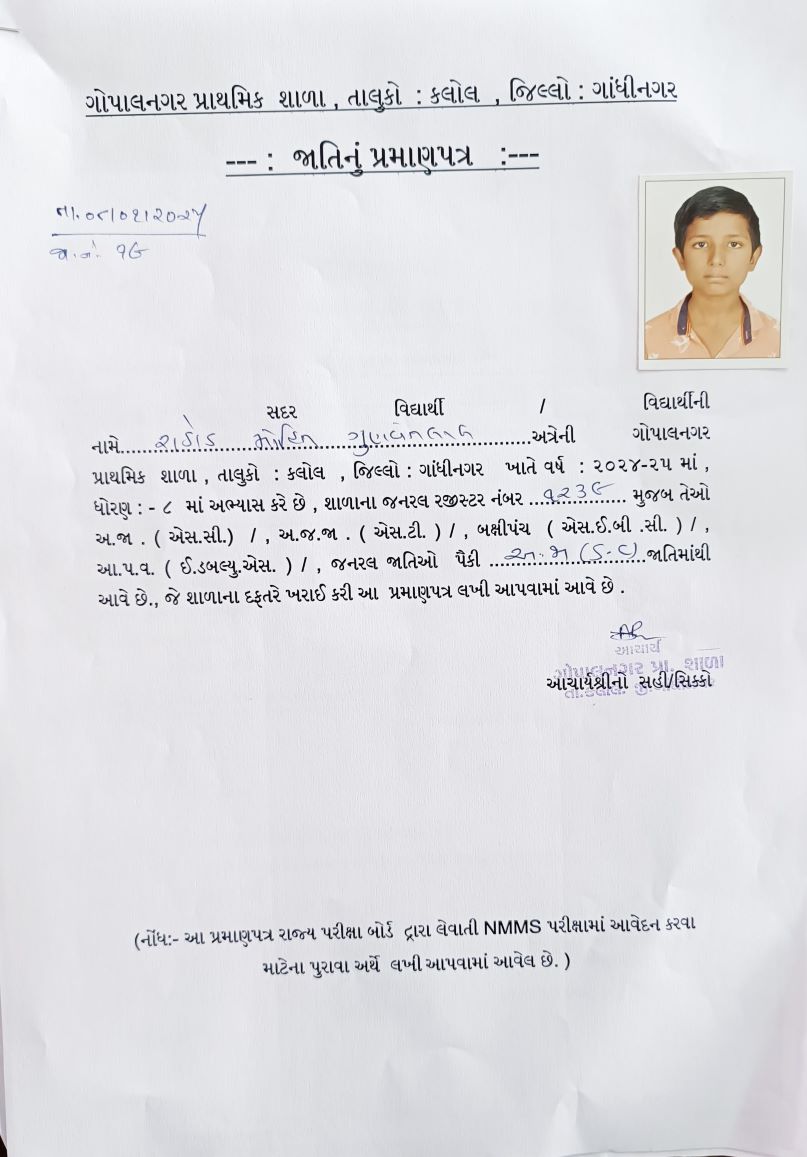 ગોપાલનગર પ્રાથમિક શાળા , તાલુકો : કલોલ , જિલ્લો : ગાંધીનગર
--- : જાતિનું પ્રમાણપત્ર :---
તા. ૦૮/૦૧/૨૦૨૫
જા.નં. ૧૬
સદર વિદ્યાર્થી / વિદ્યાર્થીની
નામે..... રાઠોડ મોહિત ગુણવંતલાલ .....અત્રેની ગોપાલનગર
પ્રાથમિક શાળા , તાલુકો : કલોલ , જિલ્લો : ગાંધીનગર ખાતે વર્ષ : ૨૦૨૪-૨૫ માં ,
ધોરણ : - ૮ માં અભ્યાસ કરે છે , શાળાના જનરલ રજીસ્ટર નંબર ..૧૨૩૯........ મુજબ તેઓ
અ.જા . ( એસ.સી.) / , અ.જ.જા . ( એસ.ટી. ) / , બક્ષીપંચ ( એસ.ઈ.બી .સી. ) / ,
આ.પ.વ. ( ઈ.ડબલ્યુ.એસ. ) / , જનરલ જાતિઓ પૈકી ...અ.જા (S.C)..જાતિમાંથી
આવે છે., જે શાળાના દફતરે ખરાઈ કરી આ પ્રમાણપત્ર લખી આપવામાં આવે છે .
આચાર્ય
ગોપાલનગર પ્રા. શાળા
તા.કલોલ જી.
આચાર્યશ્રીનો સહી/સિક્કો
(નોંધ:- આ પ્રમાણપત્ર રાજ્ય પરીક્ષા બોર્ડ દ્વારા લેવાતી NMMS પરીક્ષામાં આવેદન કરવા
માટેના પુરાવા અર્થે લખી આપવામાં આવેલ છે. )